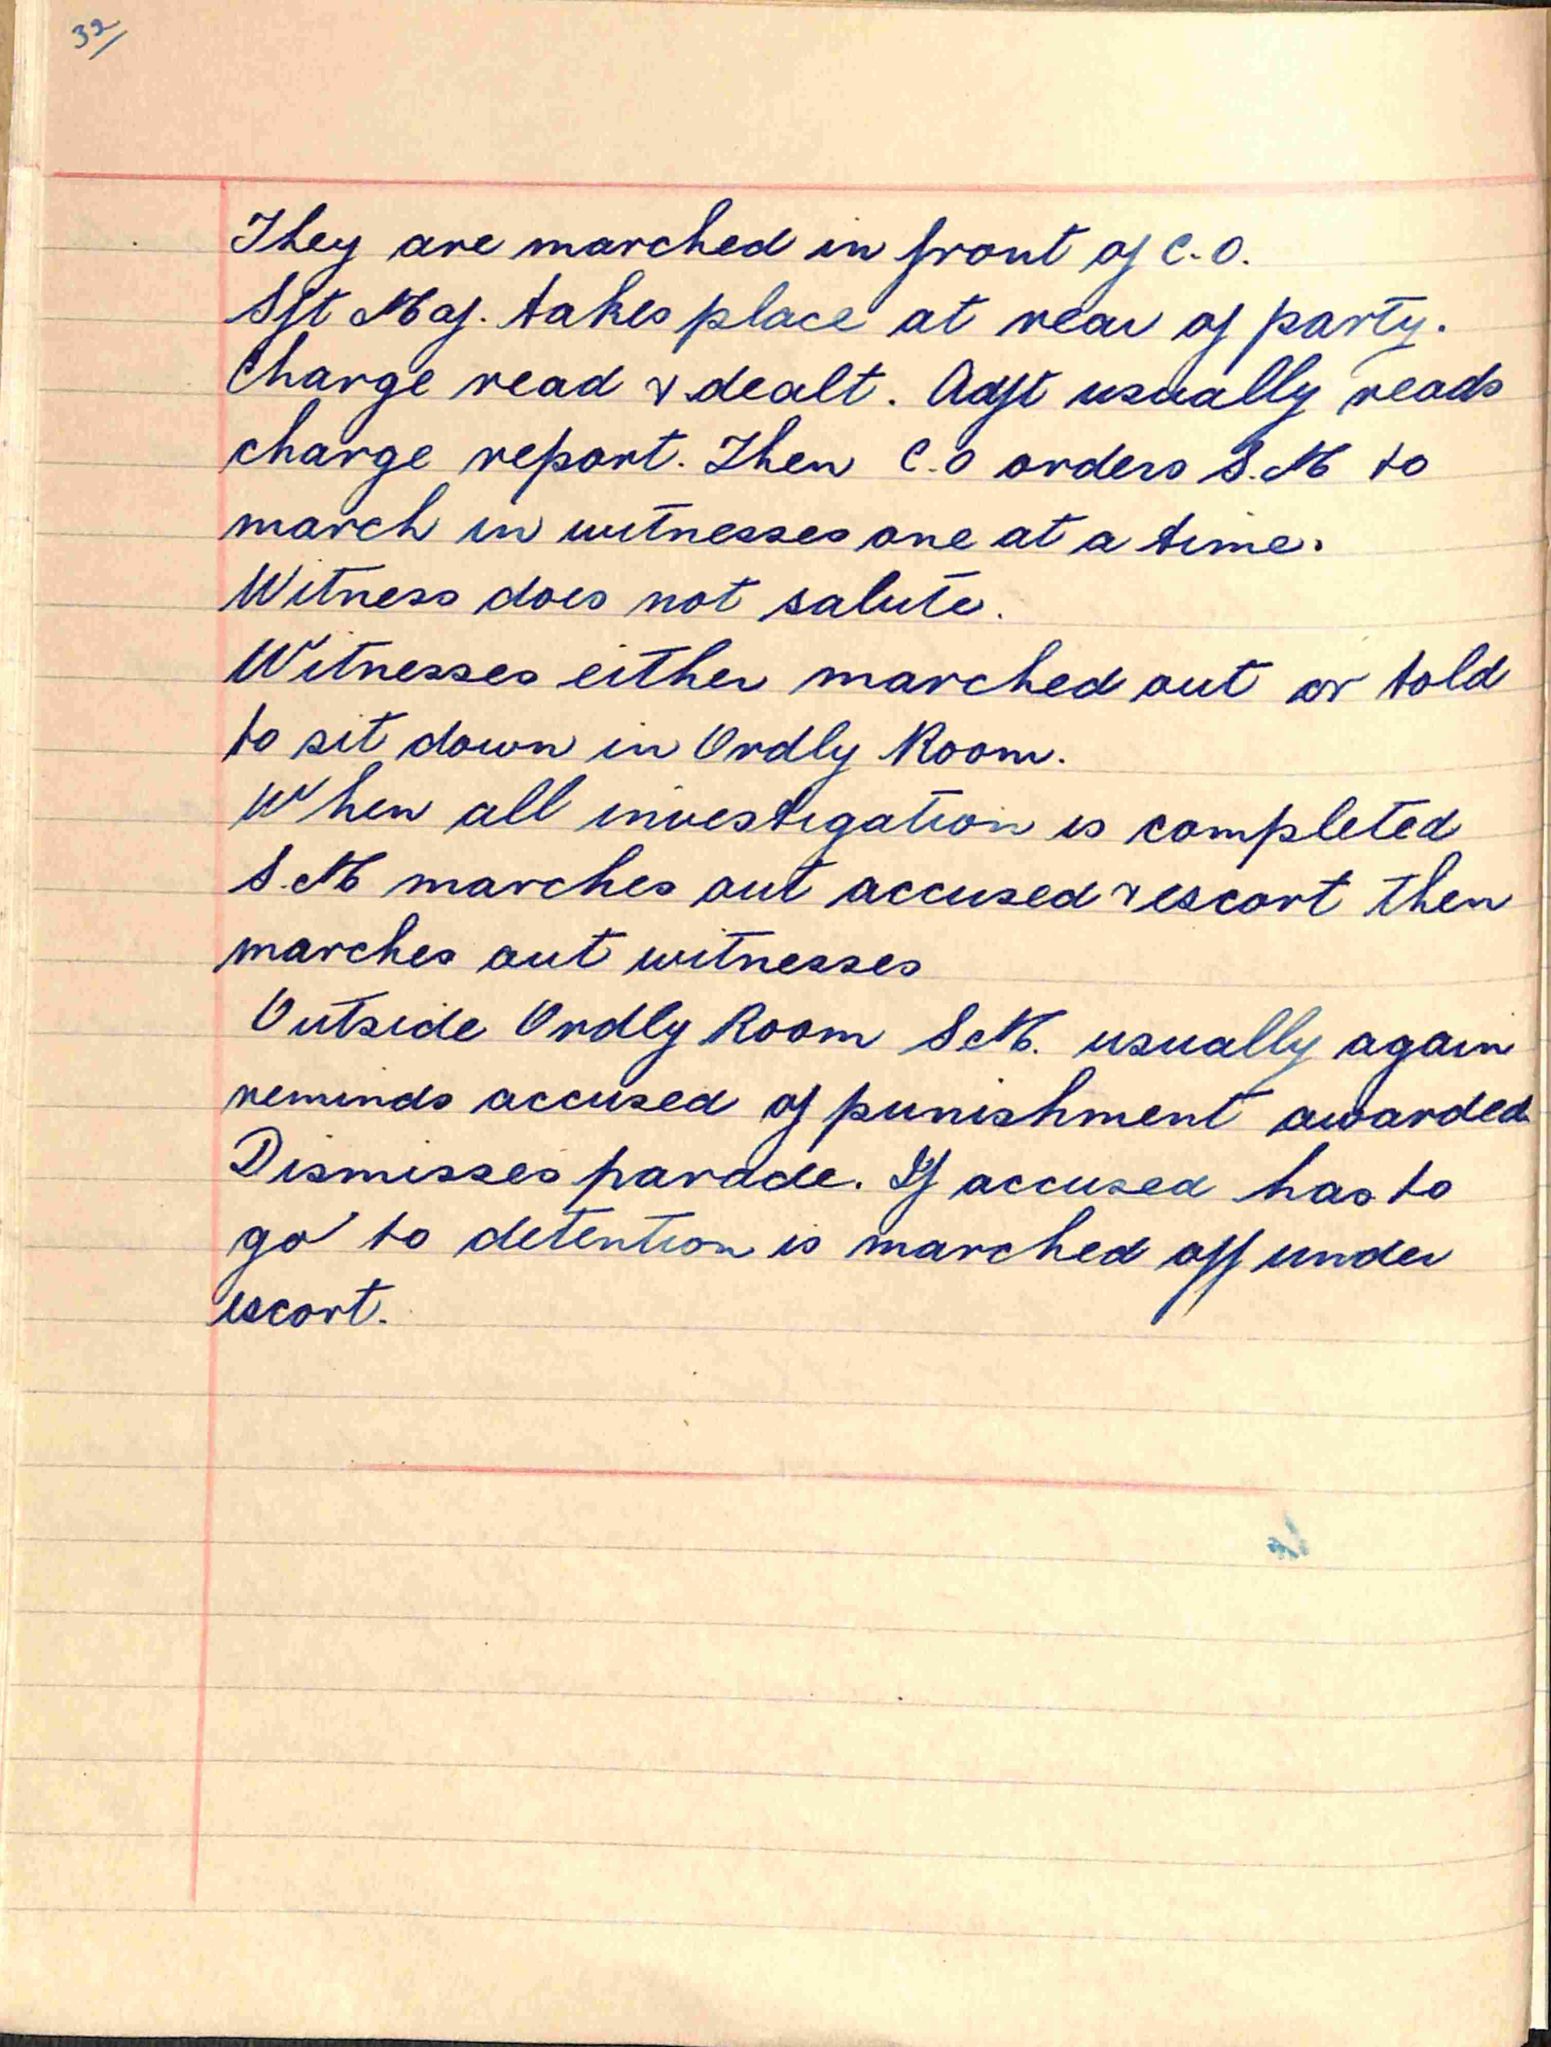 32
They are marched in front of C.O.
Sgt Maj. takes place at rear of party.
Charge read & dealt. Adjt usually reads
charge report. Then C.O orders S.M to
march in witnesses one at a time.
Witness does not salute.
Witnesses either marched out or told
to sit down in Ordly Room.
When all investigation is completed
S.M marches out accused & escort then
marches out witnesses
Outside Ordly Room S.M. usually again
reminds accused of punishment awarded.
Dismisses parade. If accused has to
go to detention is marched off under
escort.